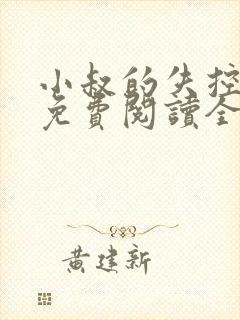 小叔的失控
免費閱讀全
黃建新